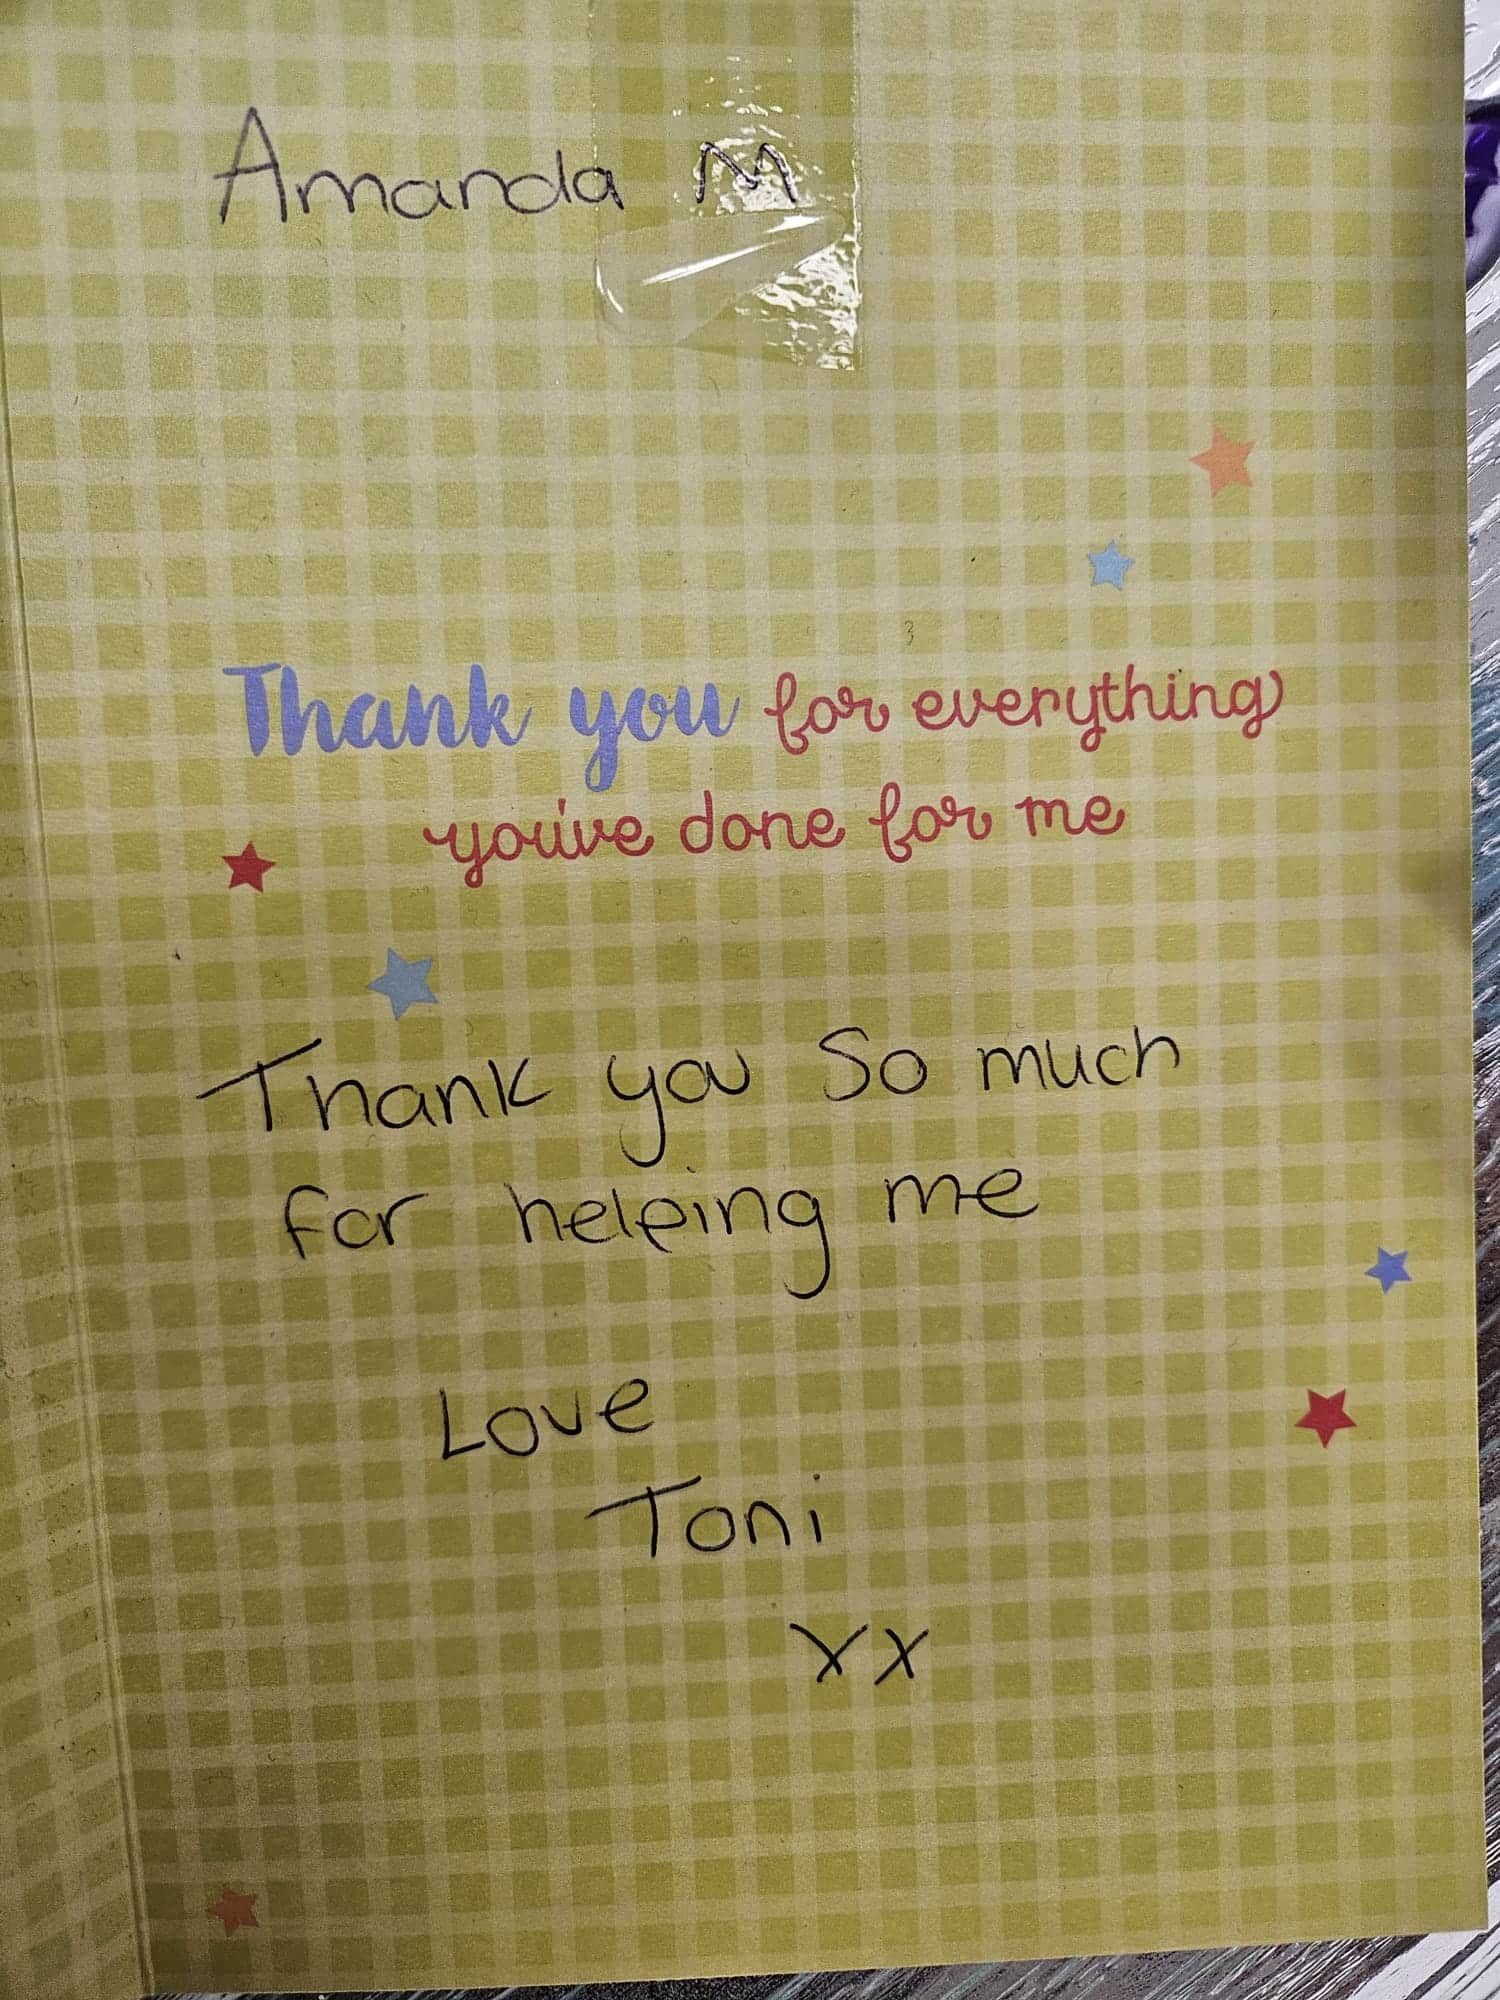 Amanda M
Thank you for everything
you've done for me
Thank you so much
for helping me
Love
Toni
xx